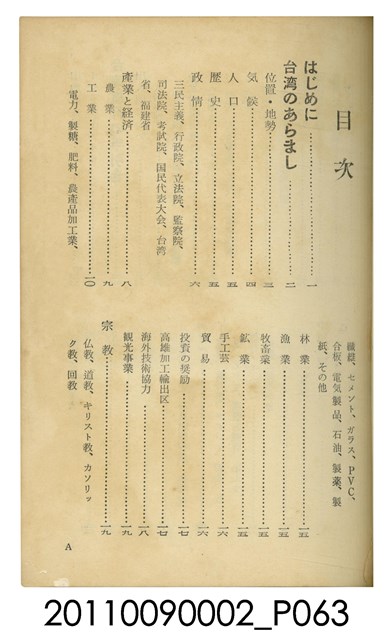 目次
はじめに……一
台湾のあらまし……二
位置・地勢……三
気候……四
人口……五
歴史……五
政情……六
三民主義、行政院、立法院、監察院、
司法院、考試院、国民代表大会、台湾
省、福建省
産業と経済……八
農業……九
工業……一〇
電力、製糖、肥料、農産品加工業、
繊維、セメント、ガラス、PVC、
合板、電気製品、石油、製薬、製
紙、その他
林業……一五
漁業……一五
牧畜業……一五
鉱業……一五
手工芸……一六
貿易……一六
投資の奨励……一七
高雄加工輸出区……一七
海外技術協力……一八
観光事業……一九
宗教……一九
仏教、道教、キリスト教、カソリッ
ク教、回教
A
20110090002_P063